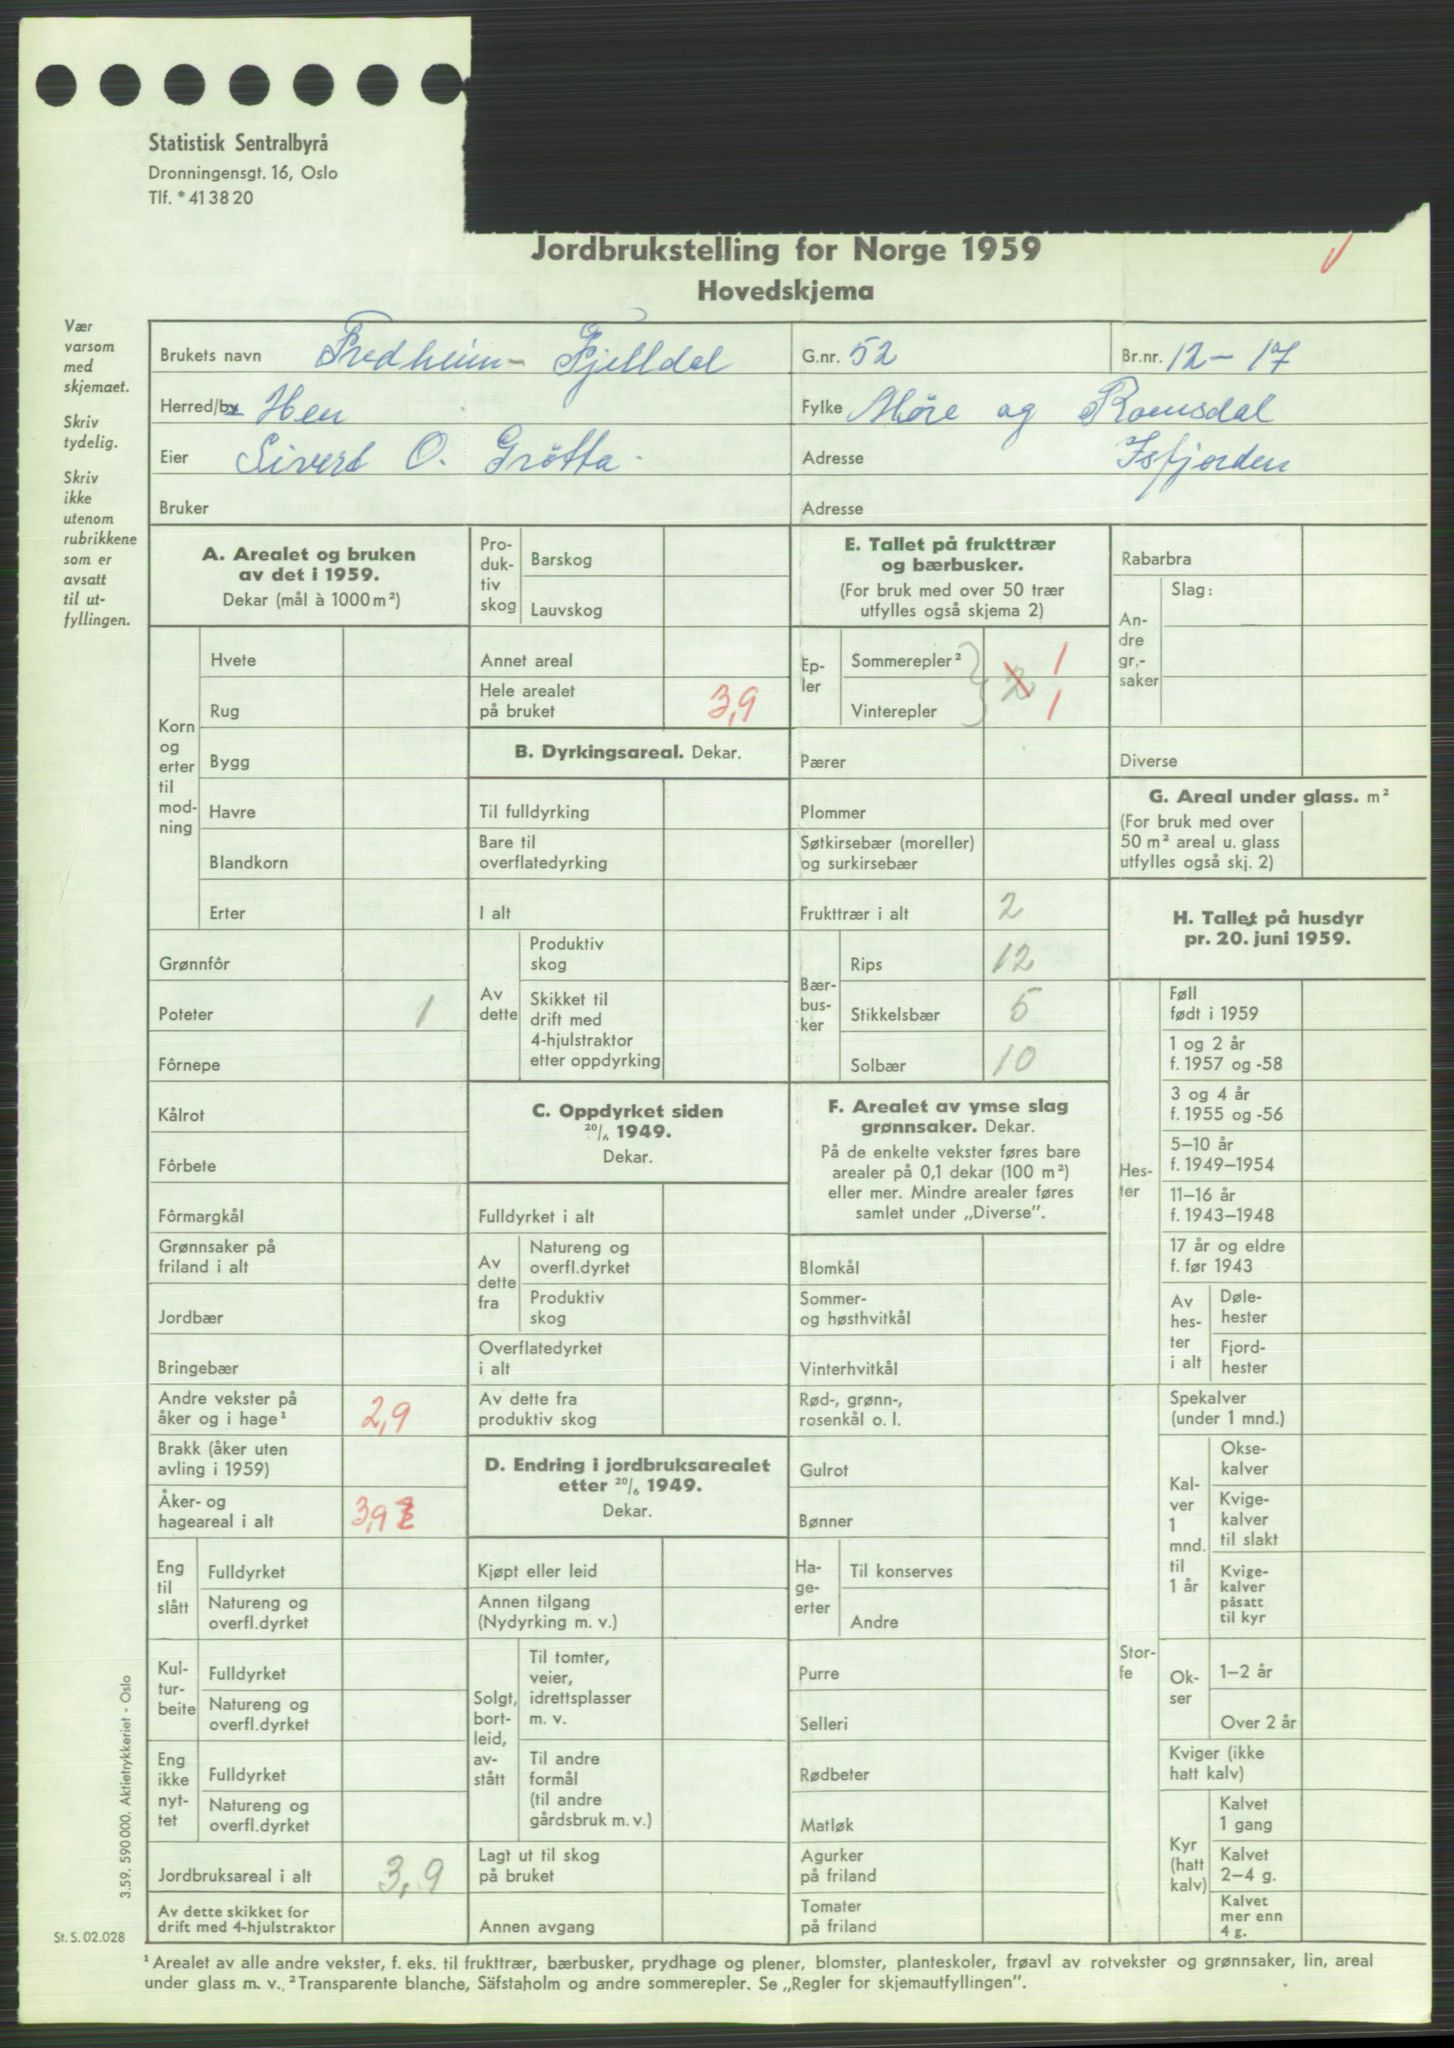 Statistisk Sentralbyrå
Dronningensgt. 16, Oslo
Tlf. * 41 38 20
Jordbrukstelling for Norge 1959
Hovedskjema
Vær
varsom
med
skjemaet.
Skriv
tydelig.
Skriv
ikke
utenom
rubrikkene
som er
avsatt
til ut-
fyllingen.
Brukets navn Fredheim - Fjelldal G.nr. 52 Br.nr. 12 - 17
Herred/by Hen Fylke Møre og Romsdal
Eier Sivert O. Grötta. Adresse Isfjorden
Bruker Adresse
A. Arealet og bruken
av det i 1959.
Dekar (mål à 1000 m²)
Korn
og
erter
til
mod-
ning
Hvete
Rug
Bygg
Havre
Blandkorn
Erter
Grønnfôr
Poteter 1
Fôrnepe
Kålrot
Fôrbete
Fôrmargkål
Grønnsaker på
friland i alt
Jordbær
Bringebær
Andre vekster på
åker og i hage¹ 2,9
Brakk (åker uten
avling i 1959)
Åker- og
hageareal i alt 3,9
Eng
til
slått
Fulldyrket
Natureng og
overfl.dyrket
Kul-
tur-
beite
Fulldyrket
Natureng og
overfl.dyrket
Eng
ikke
nyt-
tet
Fulldyrket
Natureng og
overfl.dyrket
Jordbruksareal i alt 3,9
Av dette skikket for
drift med 4-hjulstraktor
Pro-
duk-
tiv
skog
Barskog
Lauvskog
Annet areal
Hele arealet
på bruket 3,9
B. Dyrkingsareal. Dekar.
Til fulldyrking
Bare til
overflatedyrking
I alt
Av
dette
Produktiv
skog
Skikket til
drift med
4-hjulstraktor
etter oppdyrking
C. Oppdyrket siden
20/6 1949.
Dekar.
Fulldyrket i alt
Av
dette
fra
Natureng og
overfl.dyrket
Produktiv
skog
Overflatedyrket
i alt
Av dette fra
produktiv skog
D. Endring i jordbruksarealet
etter 20/6 1949.
Dekar.
Kjøpt eller leid
Annen tilgang
(Nydyrking m. v.)
Solgt,
bort-
leid,
av-
stått
Til tomter,
veier,
idrettsplasser
m. v.
Til andre
formål
(til andre
gårdsbruk m. v.)
Lagt ut til skog
på bruket
Annen avgang
E. Tallet på frukttrær
og bærbusker.
(For bruk med over 50 trær
utfylles også skjema 2)
Ep-
ler
Sommerepler² 1
2
Vinterepler 1
Pærer
Plommer
Søtkirsebær (moreller)
og surkirsebær
Frukttrær i alt 2
Bær-
bus-
ker
Rips 12
Stikkelsbær 5
Solbær 10
F. Arealet av ymse slag
grønnsaker. Dekar.
På de enkelte vekster føres bare
arealer på 0,1 dekar (100 m²)
eller mer. Mindre arealer føres
samlet under „Diverse".
Blomkål
Sommer-
og høsthvitkål
Vinterhvitkål
Rød-, grønn-,
rosenkål o. l.
Gulrot
Bønner
Ha-
ge-
erter
Til konserves
Andre
Purre
Selleri
Rødbeter
Matløk
Agurker
på friland
Tomater
på friland
Rabarbra
An-
dre
gr.-
saker
Slag:
Diverse
G. Areal under glass. m²
(For bruk med over
50 m² areal u. glass
utfylles også skj. 2)
H. Tallet på husdyr
pr. 20. juni 1959.
Hes-
ter
Føll
født i 1959
1 og 2 år
f. 1957 og -58
3 og 4 år
f. 1955 og -56
5–10 år
f. 1949–1954
11–16 år
f. 1943–1948
17 år og eldre
f. før 1943
Av
hes-
ter
i alt
Døle-
hester
Fjord-
hester
Stor-
fe
Spekalver
(under 1 mnd.)
Kal-
ver
1
mnd.
til
1 år
Okse-
kalver
Kvige-
kalver
til slakt
Kvige-
kalver
påsatt
til kyr
Ok-
ser
1–2 år
Over 2 år
Kviger (ikke
hatt kalv)
Kyr
(hatt
kalv)
Kalvet
1 gang
Kalvet
2–4 g.
Kalvet
mer enn
4 g.
3.59. 590 000. Aktietrykkeriet - Oslo
St. S. 02.028
¹ Arealet av alle andre vekster, f. eks. til frukttrær, bærbusker, prydhage og plener, blomster, planteskoler, frøavl av rotvekster og grønnsaker, lin, areal
under glass m. v., ² Transparente blanche, Säfstaholm og andre sommerepler. Se „Regler for skjemautfyllingen".